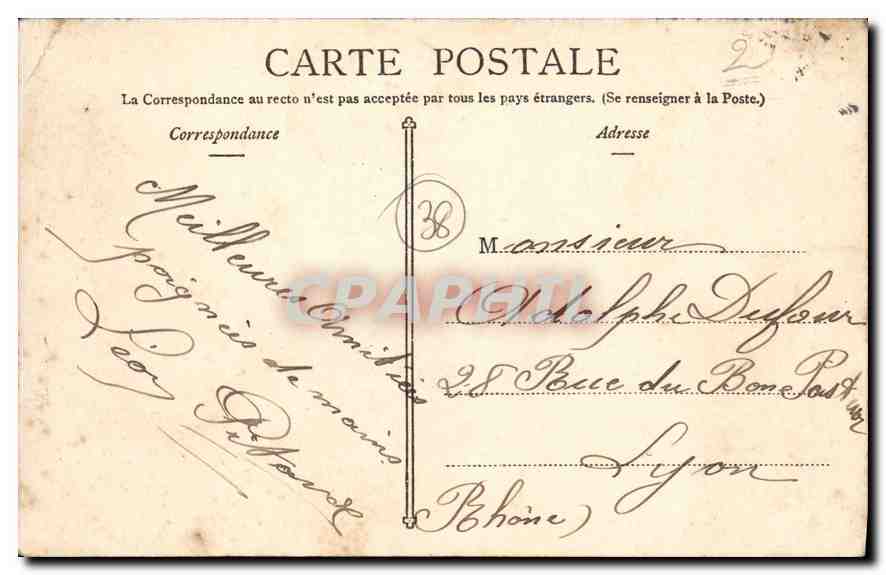 CARTE POSTALE
2
La Correspondance au recto n'est pas acceptée par tous les pays étrangers. (Se renseigner à la Poste.)
Correspondance
Adresse
Meilleures Amitiés
poignées de mains
38
CPAPHIL
Monsieur
Adolphe Dufour
28 Rue du Bon Pasteur
Lyon
Rhône)